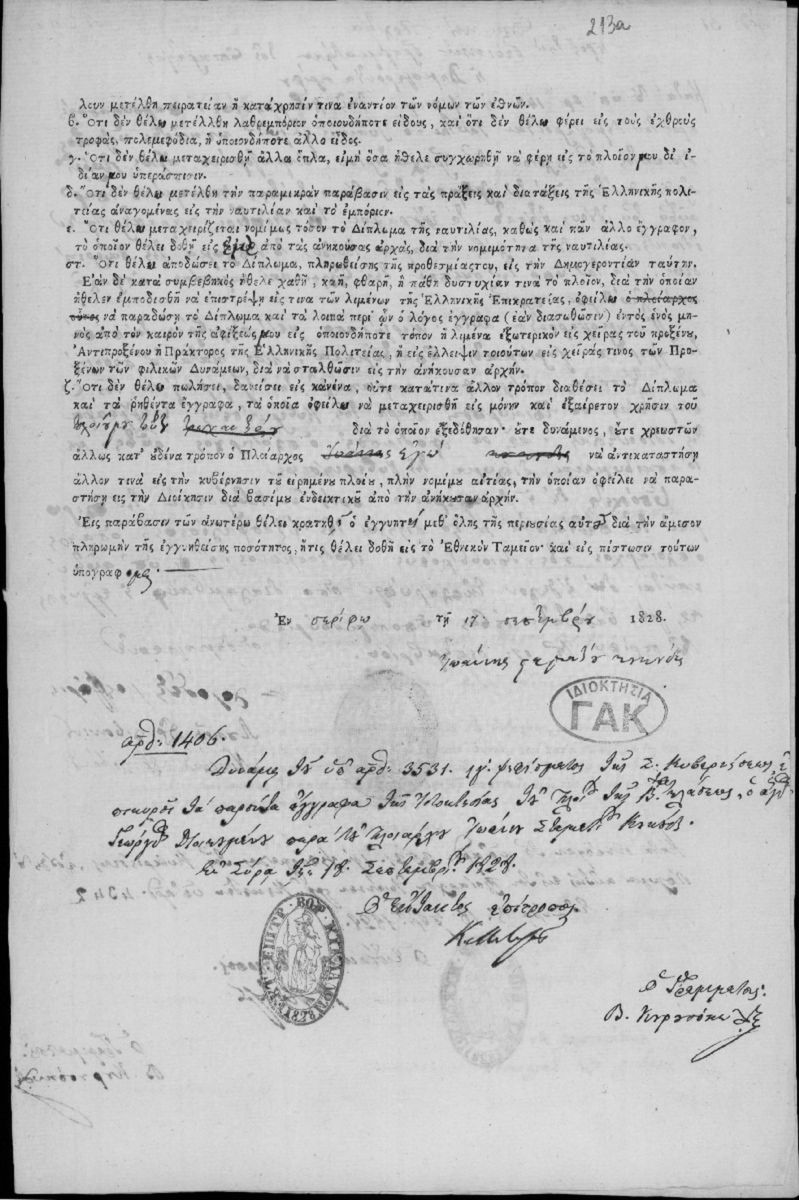 213a
λουν μετέλθη πειρατείαν ἢ κατάχρησίν τινα ἐναντίον τῶν νόμων τῶν ἐθνῶν.
β. Ὅτι δὲν θέλω μετέλθη λαθρεμπόριον ὁποιουδήποτε εἴδους, καὶ ὅτι δὲν θέλω φέρει εἰς τοὺς ἐχθροὺς
τροφὰς, πολεμεφόδια, ἢ ὁποιονδήποτε ἄλλο εἶδος.
γ. Ὅτι δὲν θέλω μεταχειρισθῆ ἄλλα ὅπλα, εἰμὴ ὅσα ἤθελε συγχωρηθῆ νὰ φέρῃ εἰς τὸ πλοῖον μου δι' ἰ-
δίαν μου ὑπεράσπισιν.
δ. Ὅτι δὲν θέλω μετέλθη τὴν παραμικρὰν παράβασιν εἰς τὰς πράξεις καὶ διατάξεις τῆς Ἑλληνικῆς πολι-
τείας ἀναγομένας εἰς τὴν ναυτιλίαν καὶ τὸ ἐμπόριον.
ε. Ὅτι θέλω μεταχειρίζεται νομίμως τόσον τὸ Δίπλωμα τῆς ναυτιλίας, καθὼς καὶ πᾶν ἄλλο ἔγγραφον,
τὸ ὁποῖον θέλει δοθῆ εἰς ἐμὲ ἀπὸ τὰς ἀνηκούσας ἀρχὰς, διὰ τὴν νομιμότητα τῆς ναυτιλίας.
στ. Ὅτι θέλω ἀποδώσει τὸ Δίπλωμα, πληρωθείσης τῆς προθεσμίας του, εἰς τὴν Δημογεροντίαν ταύτην.
Ἐὰν δὲ κατὰ συμβεβηκὸς ἤθελε χαθῆ, καῆ, φθαρῆ, ἢ πάθῃ δυστυχίαν τινὰ τὸ πλοῖον, διὰ τὴν ὁποίαν
ἤθελεν ἐμποδισθῆ νὰ ἐπιστρέψῃ εἴς τινα τῶν λιμένων τῆς Ἑλληνικῆς Ἐπικρατείας, ὀφείλω ὁ πλοίαρχος
τούτου νὰ παραδώσῃ τὸ Δίπλωμα καὶ τὰ λοιπὰ περὶ ὧν ὁ λόγος ἔγγραφα (ἐὰν διασωθῶσιν) ἐντὸς ἑνὸς μη-
νὸς ἀπὸ τὸν καιρὸν τῆς ἀφίξεώς μου εἰς ὁποιονδήποτε τόπον ἢ λιμένα ἐξωτερικὸν εἰς χεῖρας τοῦ προξένου,
Ἀντιπροξένου ἢ Πράκτορος τῆς Ἑλληνικῆς Πολιτείας, ἢ εἰς ἔλλειψιν τοιούτων εἰς χεῖράς τινος τῶν Προ-
ξένων τῶν φιλικῶν Δυνάμεων, διὰ νὰ σταλθῶσιν εἰς τὴν ἀνήκουσαν ἀρχήν.
ζ. Ὅτι δὲν θέλω πωλήσει, δανείσει εἰς κανένα, οὔτε κατά τινα ἄλλον τρόπον διαθέσει τὸ Δίπλωμα
καὶ τὰ ῥηθέντα ἔγγραφα, τὰ ὁποῖα ὀφείλω νὰ μεταχειρισθῇ εἰς μόνην καὶ ἐξαίρετον χρῆσιν τοῦ
διὰ τὸ ὁποῖον ἐξεδόθησαν· οὔτε δυνάμενος, οὔτε χρεωστῶν
ἄλλως κατ' οὐδένα τρόπον ὁ Πλοίαρχος Ἰωάννης ἐγὼ νὰ ἀντικαταστήσῃ
ἄλλον τινὰ εἰς τὴν κυβέρνησιν τοῦ εἰρημένου πλοίου, πλὴν νομίμου αἰτίας, τὴν ὁποίαν ὀφείλει νὰ παρα-
στήσῃ εἰς τὴν Διοίκησιν διὰ βασίμου ἐνδεικτικοῦ ἀπὸ τὴν ἀνήκουσαν ἀρχήν.
Εἰς παράβασιν τῶν ἀνωτέρω θέλει κρατηθῆ ὁ ἐγγυητὴς μεθ' ὅλης τῆς περιουσίας αὐτοῦ διὰ τὴν ἄμεσον
πληρωμὴν τῆς ἐγγυηθείσης ποσότητος, ἥτις θέλει δοθῆ εἰς τὸ Ἐθνικὸν Ταμεῖον· καὶ εἰς πίστωσιν τούτων
ὑπογράφομαι.
Ἐν σερίφω τῇ 17 σεπτεμβρίου 1828.
Ἰωάννης
ΙΔΙΟΚΤΗΣΙΑ
ΓΑΚ
ἀριθ: 1406.
Δυνάμει τοῦ ὑπ' ἀριθ: 3531. ψηφίσματος τῆς Σ. Κυβερνήσεως, ἐ-
τὰ παρόντα ἔγγραφα τῆς τοῦ πλοίου τῆς Β. κλάσεως, ὁ ἅγιος
Γεώργιος παρὰ τοῦ πλοιάρχου Ἰωάννου
Ἐν Σύρα τῇ 18 Σεπτεμβρίου 1828.
Ὁ Ἔκτακτος ἐπίτροπος
ΕΚΤ. ΕΠΙΤΡ. ΒΟΡ. ΚΥΚΛΑΔΩΝ 1828
Ὁ Γραμματεύς:
Β.